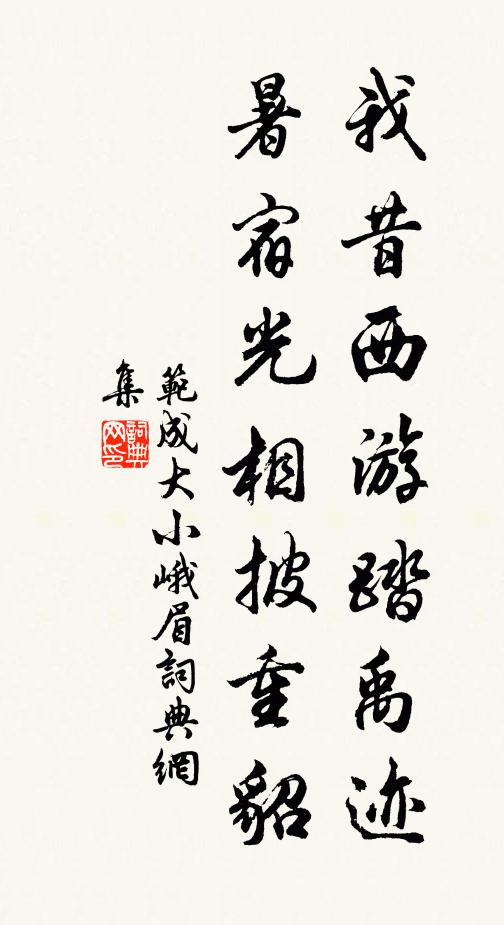 我昔西游踏禹迹
暑宿光相披重貂
範成大小峨眉詞典網
集
詞典网印